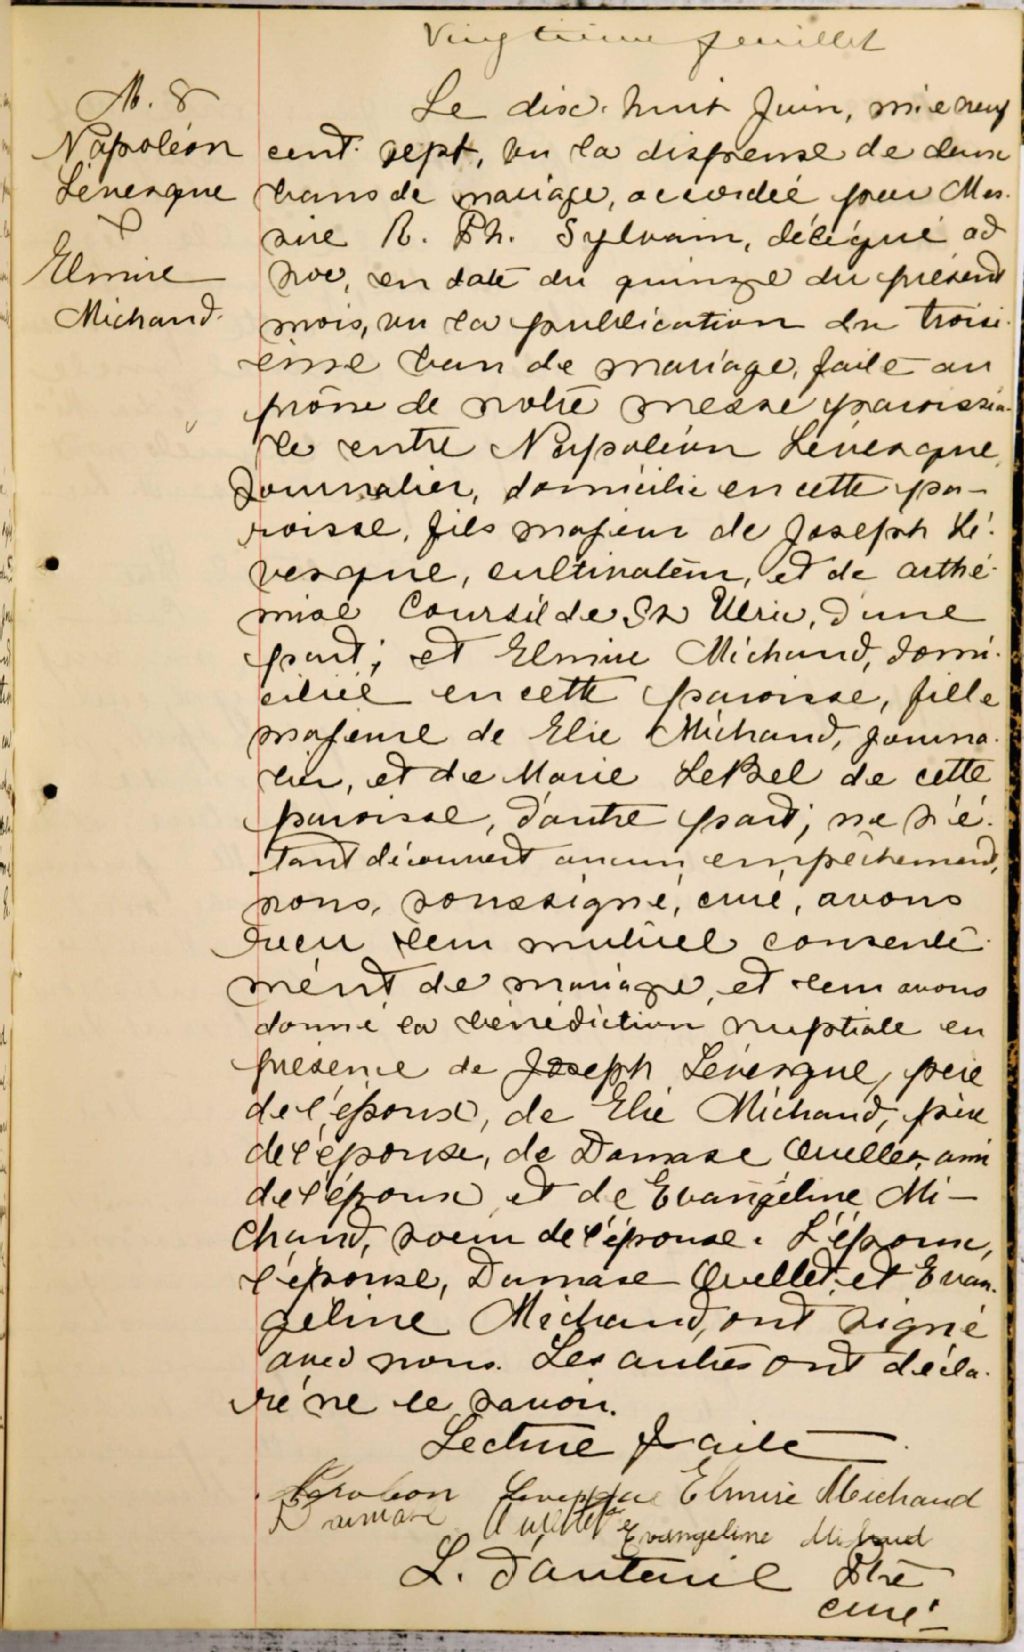 Vingtième feuillet
M. 8
Napoléon
Lévesque
&
Elmire
Michaud.
Le dix-huit Juin, mil neuf
cent sept, vu la dispense de deux
bans de mariage, accordée par Mes-
sire R. Ph. Sylvain, délégué ad
hoc, en date du quinze du présent
mois, vu la publication du troisi-
ème ban de mariage, faite au
prône de notre messe paroissia-
le entre Napoléon Lévesque,
Journalier, domicilié en cette pa-
roisse, fils majeur de Joseph Lé-
vesque, cultivateur, et de Arthé-
mise Coursil de St Ulric, d'une
part; et Elmire Michaud, domi-
ciliée en cette paroisse, fille
majeure de Elie Michaud, journa-
lier, et de Marie LeBel de cette
paroisse, d'autre part; ne s'é-
tant découvert aucun empêchement,
nous, soussigné, curé, avons
reçu leur mutuel consente-
ment de mariage, et leur avons
donné la bénédiction nuptiale en
présence de Joseph Lévesque, père
de l'époux, de Elie Michaud, père
de l'épouse, de Damase Ouellet, ami
de l'époux et de Evangéline Mi-
chaud, soeur de l'épouse. L'époux,
l'épouse, Damase Ouellet, et Evan-
géline Michaud, ont signé
avec nous. Les autres ont décla-
ré ne le savoir.
Lecture faite
Napoleon Levesque Elmire Michaud
Damase Ouellet Evangeline Michaud
L. D'Auteuil Ptre
curé